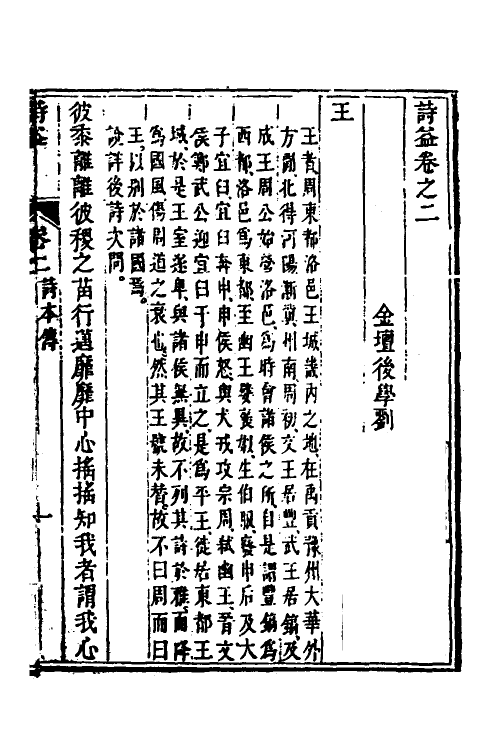 詩益卷之二
金壇後學劉
王
王者周東都洛邑王城畿內之地在禹貢豫州大華外
方間北得河陽漸冀州南周初文王居豐武王居鎬及
成王周公始營洛邑為時會諸侯之所自是謂豐鎬為
西都洛邑為東都至幽王嬖褒姒生伯服廢申后及大
子宜臼宜臼奔申申侯怒與犬戎攻宗周弒幽王晉文
侯鄭武公迎宜臼于申而立之是為平王徙居東都王
城於是王室遂卑與諸侯無異故不列其詩於雅而降
為國風傷周道之衰也然其王號未替故不曰周而曰
王以别於諸國焉
說詳後詩次問
彼黍離離彼稷之苗行邁靡靡中心搖搖知我者謂我心
詩益
卷二 詩本傳
一